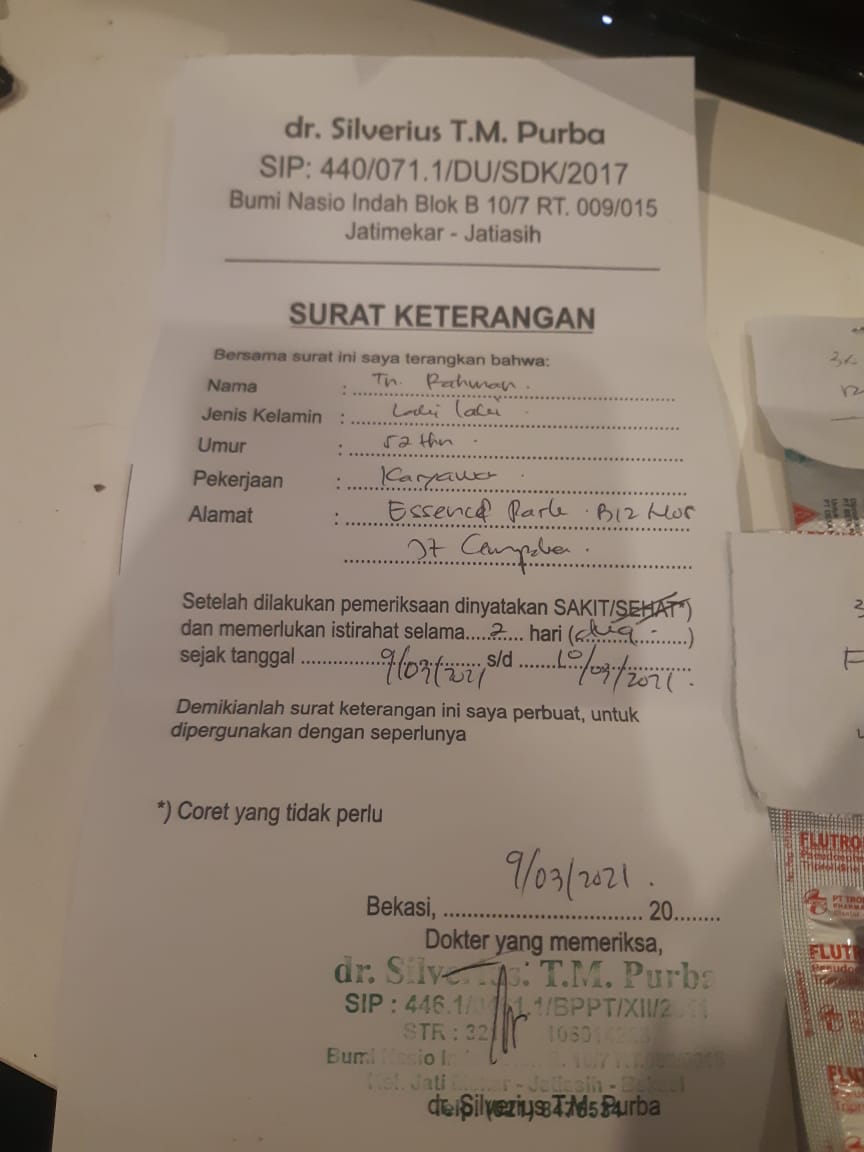 dr. Silverius T.M. Purba
SIP: 440/071.1/DU/SDK/2017
Bumi Nasio Indah Blok B 10/7 RT. 009/015
Jatimekar - Jatiasih
SURAT KETERANGAN
Bersama surat ini saya terangkan bahwa:
Nama : Tn. Rahman.
Jenis Kelamin : Laki laki
Umur : 52 thn
Pekerjaan : Karyawan
Alamat : Essence Park B12
Setelah dilakukan pemeriksaan dinyatakan SAKIT/SEHAT*)
dan memerlukan istirahat selama....2.... hari (dua)
sejak tanggal 9/03/2021 s/d 10/03/2021.
Demikianlah surat keterangan ini saya perbuat, untuk
dipergunakan dengan seperlunya
*) Coret yang tidak perlu
9/03/2021.
Bekasi, ................................ 20........
Dokter yang memeriksa,
dr. T.M. Purba
SIP : 446.1/ 1.1/BPPT/XII/2
STR : 32
dr. Silverius T.M. Purba
3x
FLUTRO
PT TRO
FLUT
FLU